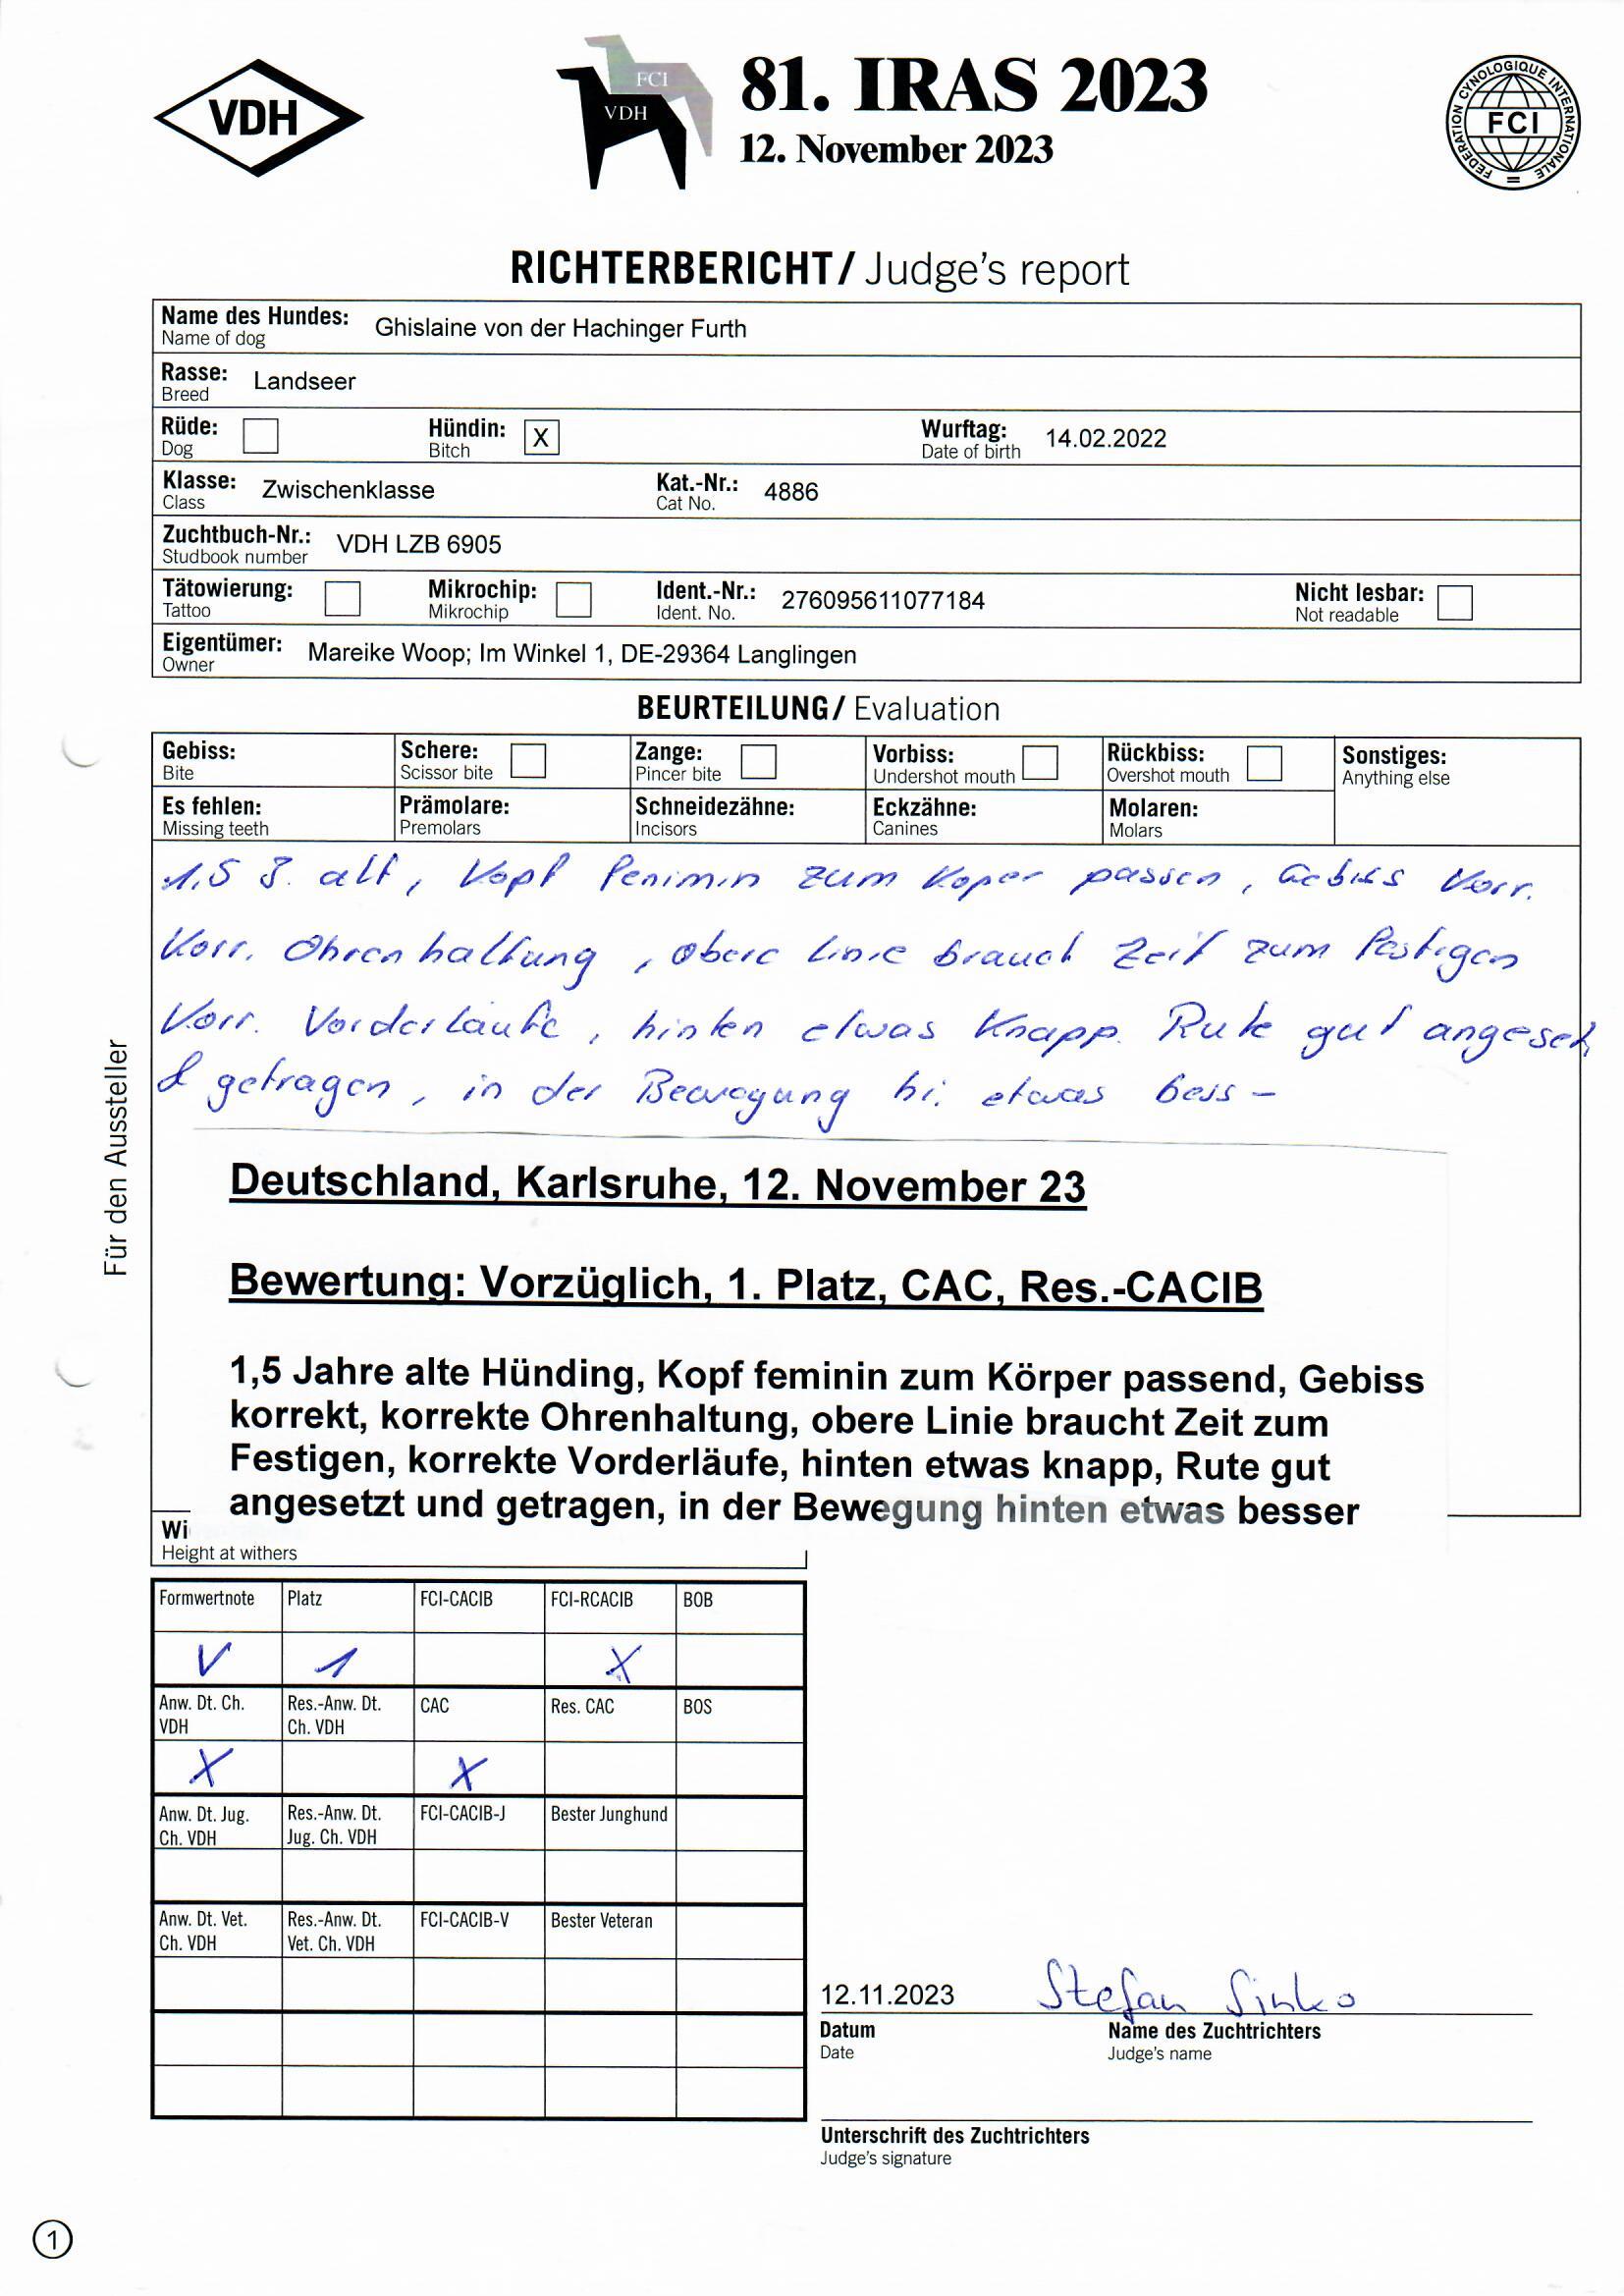 VDH
FCI
VDH
81. IRAS 2023
12. November 2023
FEDERATION CYNOLOGIQUE INTERNATIONALE
FCI
RICHTERBERICHT/ Judge's report
Name des Hundes: Ghislaine von der Hachinger Furth
Name of dog
Rasse: Landseer
Breed
Rüde: Hündin: X Wurftag: 14.02.2022
Dog Bitch Date of birth
Klasse: Zwischenklasse Kat.-Nr.: 4886
Class Cat No.
Zuchtbuch-Nr.: VDH LZB 6905
Studbook number
Tätowierung: Mikrochip: Ident.-Nr.: 276095611077184 Nicht lesbar:
Tattoo Mikrochip Ident. No. Not readable
Eigentümer: Mareike Woop; Im Winkel 1, DE-29364 Langlingen
Owner
BEURTEILUNG/ Evaluation
Gebiss: Schere: Zange: Vorbiss: Rückbiss: Sonstiges:
Bite Scissor bite Pincer bite Undershot mouth Overshot mouth Anything else
Es fehlen: Prämolare: Schneidezähne: Eckzähne: Molaren:
Missing teeth Premolars Incisors Canines Molars
1,5 J. alt, Kopf feminin zum Koper passen, Gebiss Korr.
Korr. Ohrenhaltung, obere Linie brauch Zeit zum festigen
Korr. Vorderläufe, hinten etwas Knapp. Rute gut angeset
& getragen, in der Bewegung hi. etwas bess-
Für den Aussteller
Deutschland, Karlsruhe, 12. November 23
Bewertung: Vorzüglich, 1. Platz, CAC, Res.-CACIB
1,5 Jahre alte Hünding, Kopf feminin zum Körper passend, Gebiss
korrekt, korrekte Ohrenhaltung, obere Linie braucht Zeit zum
Festigen, korrekte Vorderläufe, hinten etwas knapp, Rute gut
angesetzt und getragen, in der Bewegung hinten etwas besser
Wi
Height at withers
Formwertnote Platz FCI-CACIB FCI-RCACIB BOB
V 1 X
Anw. Dt. Ch. Res.-Anw. Dt. CAC Res. CAC BOS
VDH Ch. VDH
X X
Anw. Dt. Jug. Res.-Anw. Dt. FCI-CACIB-J Bester Junghund
Ch. VDH Jug. Ch. VDH
Anw. Dt. Vet. Res.-Anw. Dt. FCI-CACIB-V Bester Veteran
Ch. VDH Vet. Ch. VDH
12.11.2023 Stefan Sinko
Datum Name des Zuchtrichters
Date Judge's name
Unterschrift des Zuchtrichters
Judge's signature
1